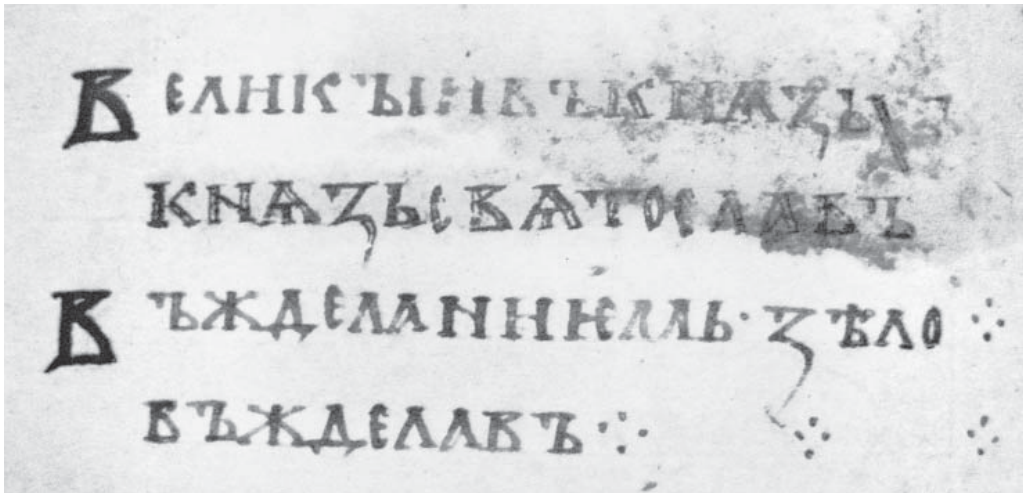 ВЕЛИКЪІИВЪКНѦЗЬХЪ
КНѦЗЬСВѦТОСЛАВЪ
ВЪЖДЕЛАНИѤМЬ· ЗѢЛО ⁘
ВЪЖДЕЛАВЪ ⁘ ⁘ ⁘